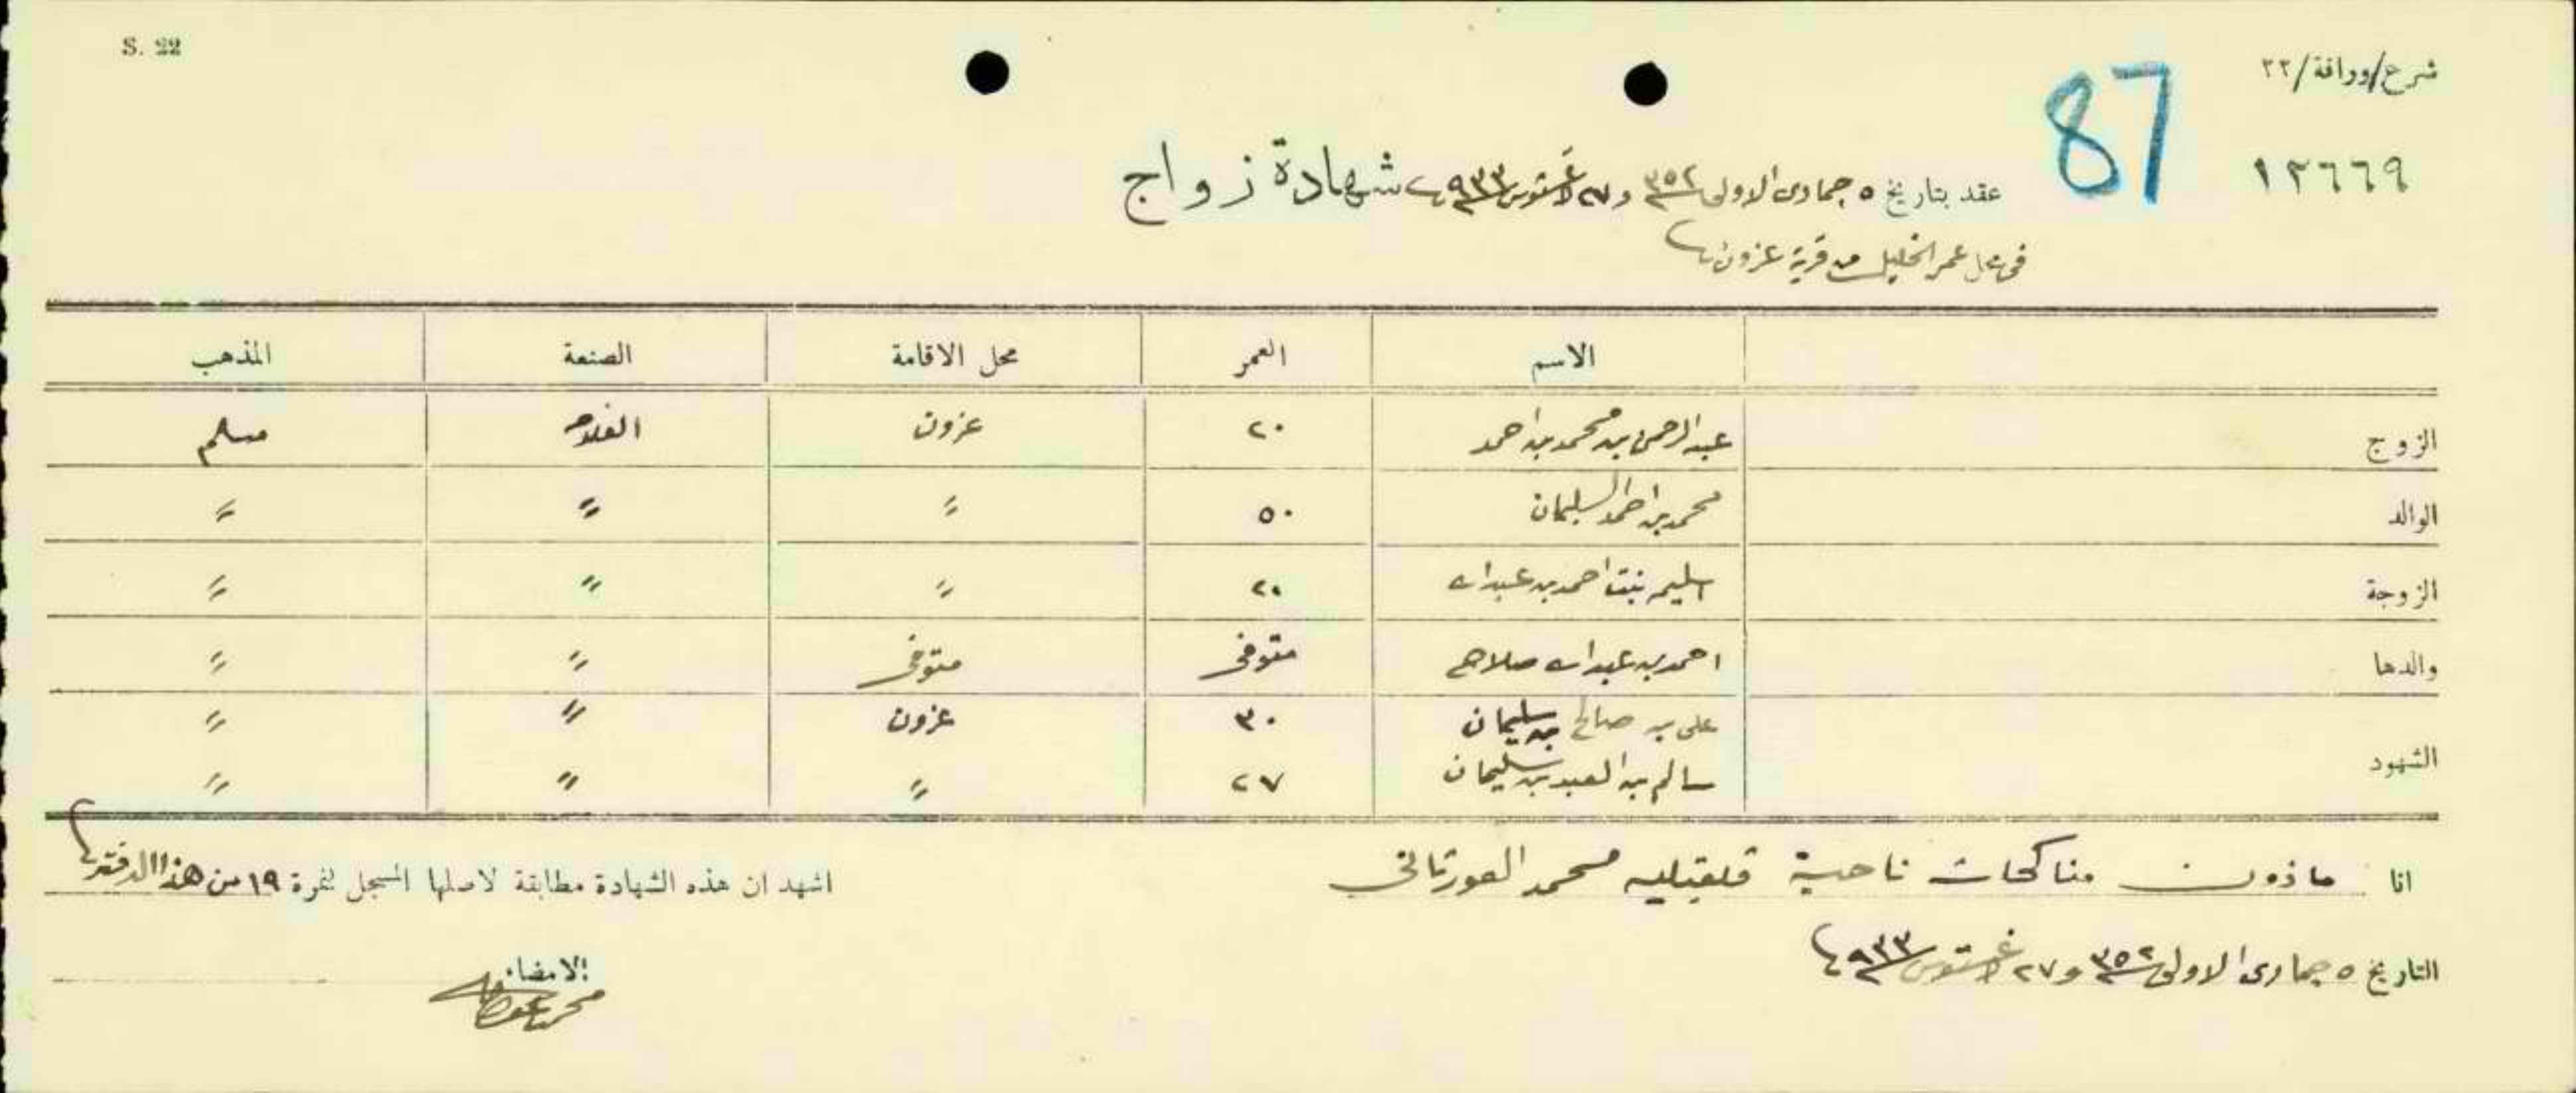 S. 22
شرع/وراقة/٢٢
87
١٣٦٦٩
عقد بتاريخ ٥ جمادى الاولى ٣٥٢ و٢٧ اغستوس ٩٣٣ شهادة زواج
في محل عمر الخليل من قرية عزون
الاسم العمر محل الاقامة الصنعة المذهب
الزوج عبد الرحمن بن محمد بن احمد ٢٠ عزون الفلاحه مسلم
الوالد محمد بن احمد السليمان ٥٠〃 〃 〃
الزوجة اسليمه بنت احمد بن عبدالله ٢٠ 〃 〃 〃
والدها احمد بن عبدالله صلاح متوفى متوفى 〃 〃
الشهود علي بن صالح بن سليمان ٣٠ عزون 〃 〃
سالم بن العبد بن سليمان ٢٧ 〃 〃 〃
انا ماذون مناكحات ناحية قلقيليه محمد اشهد ان هذه الشهادة مطابقة لاصلها المسجل لنمرة ١٩ من هذا الدفتر
التاريخ ٥ جمادى الاولى ٣٥٢ و٢٧ اغستوس ٩٣٣
الامضاء